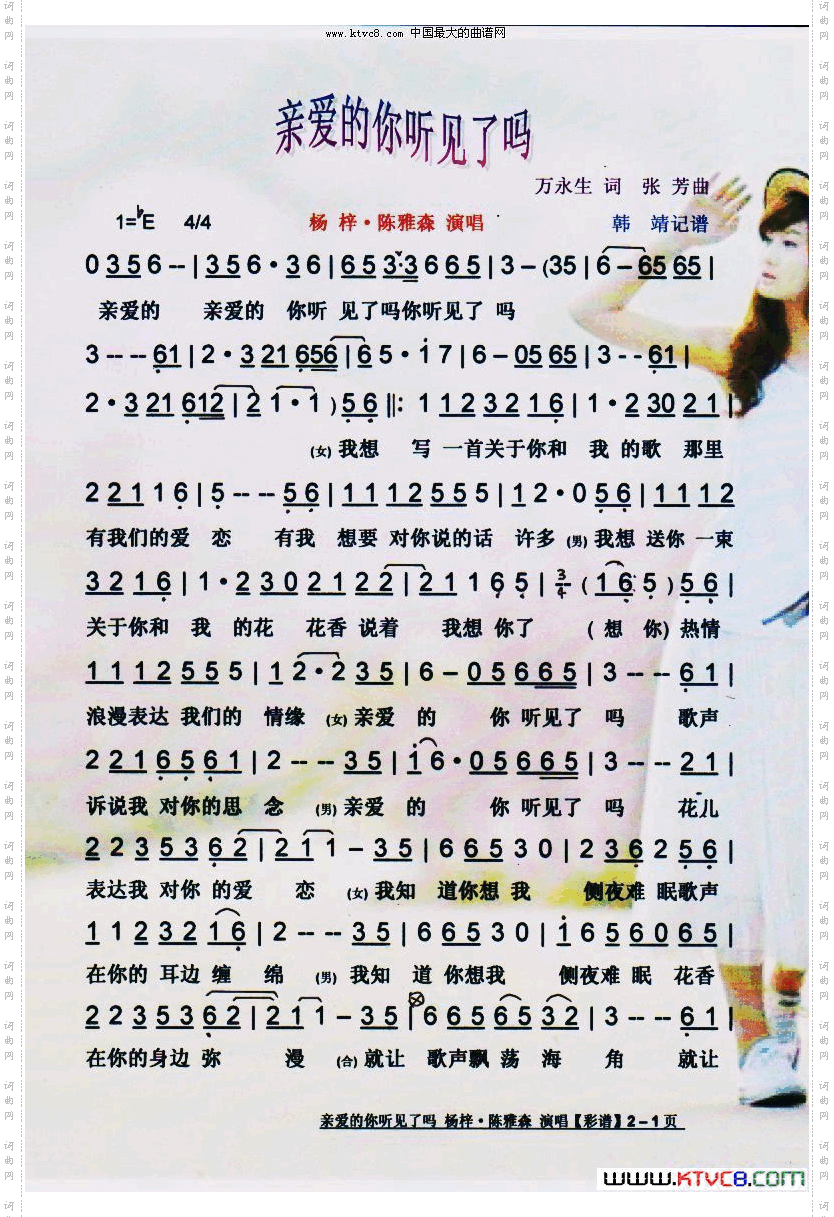 www.ktvc8.com 中国最大的曲谱网
亲爱的你听见了吗
万永生 词 张 芳曲
1=♭E 4/4 杨 梓·陈雅森 演唱 韩 靖记谱
0 3 5 6 - - | 3 5 6 · 3 6 | 6 5 3 · 3 6 6 5 | 3 - (35 | 6 - 65 65 |
亲爱的 亲爱的 你听 见了吗你听见了 吗
3 - - - 61 | 2 · 3 21 656 | 6 5 · 1 7 | 6 - 05 65 | 3 - - 61 |
2 · 3 21 612 | 2 1 · 1 ) 5 6 ‖: 1 1 2 3 2 1 6 | 1 · 2 30 2 1 |
(女) 我想 写 一首关于你和 我 的歌 那里
2 2 1 1 6 | 5 - - 5 6 | 1 1 1 2 5 5 5 | 1 2 · 0 5 6 | 1 1 1 2
有我们的爱 恋 有我 想要 对你说的话 许多 (男) 我想 送你 一束
3 2 1 6 | 1 · 2 3 0 2 1 2 2 | 2 1 1 6 5 | 3/4 ( 1 6 5 ) 5 6 |
关于你和 我 的花 花香 说着 我想 你了 ( 想 你) 热情
1 1 1 2 5 5 5 | 1 2 · 2 3 5 | 6 - 0 5 6 6 5 | 3 - - 6 1 |
浪漫表达 我们的 情缘 (女) 亲爱 的 你 听见了 吗 歌声
2 2 1 6 5 6 1 | 2 - - 3 5 | 1 6 · 0 5 6 6 5 | 3 - - 2 1 |
诉说我 对你的思 念 (男) 亲爱 的 你 听见了 吗 花儿
2 2 3 5 3 6 2 | 2 1 1 - 3 5 | 6 6 5 3 0 | 2 3 6 2 5 6 |
表达我 对你 的爱 恋 (女) 我知 道你想 我 侧夜难 眠歌声
1 1 2 3 2 1 6 | 2 - - 3 5 | 6 6 5 3 0 | 1 6 5 6 0 6 5 |
在你的 耳边 缠 绵 (男) 我知 道 你想我 侧夜难 眠 花香
2 2 3 5 3 6 2 | 2 1 1 - 3 5 | 6 6 5 6 5 3 2 | 3 - - 6 1 |
在你的身边 弥 漫 (合) 就让 歌声飘 荡 海 角 就让
亲爱的你听见了吗 杨梓·陈雅森 演唱【彩谱】2-1页
www.KTVC8.com